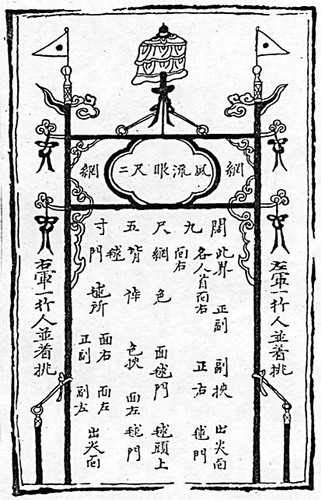 網
風流眼尺二
網
左軍一行人並着挑
闊 此界 正副 副挾 出尖向
各人皆向右 正右 毬門
九 向右
尺 網 色 面毬門 毬頭上
五 背 作 色挾 面左 毬門
毬
寸 門 毬所 面右 面左
正副 副左 出尖向
右軍一行人並着挑